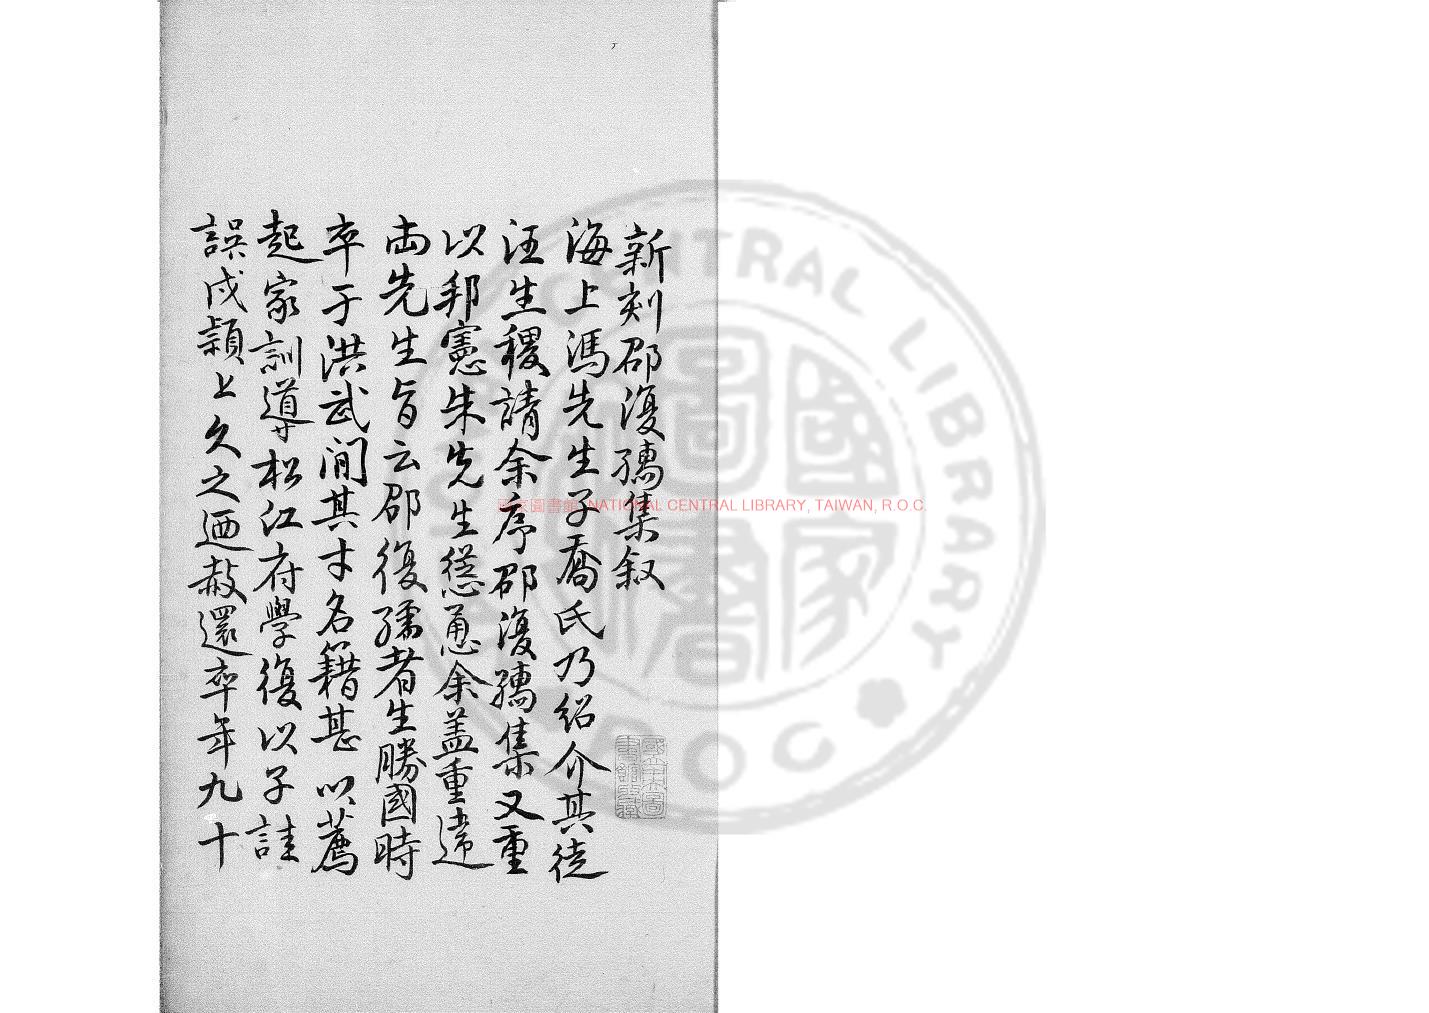 新刻邵復孺集叙
海上馮先生子喬氏乃紹介其徒
汪生稷請余序邵復孺集又重
以邦憲朱先生慫恿余蓋重違
両先生旨云邵復孺者生勝國時
卒于洪武間其才名籍甚以薦
起家訓導松江府學復以子詿
誤戍潁上久之迺赦還卒年九十
國家圖書館 NATIONAL CENTRAL LIBRARY, TAIWAN, R.O.C.
CENTRAL LIBRARY
ROC
國家圖書